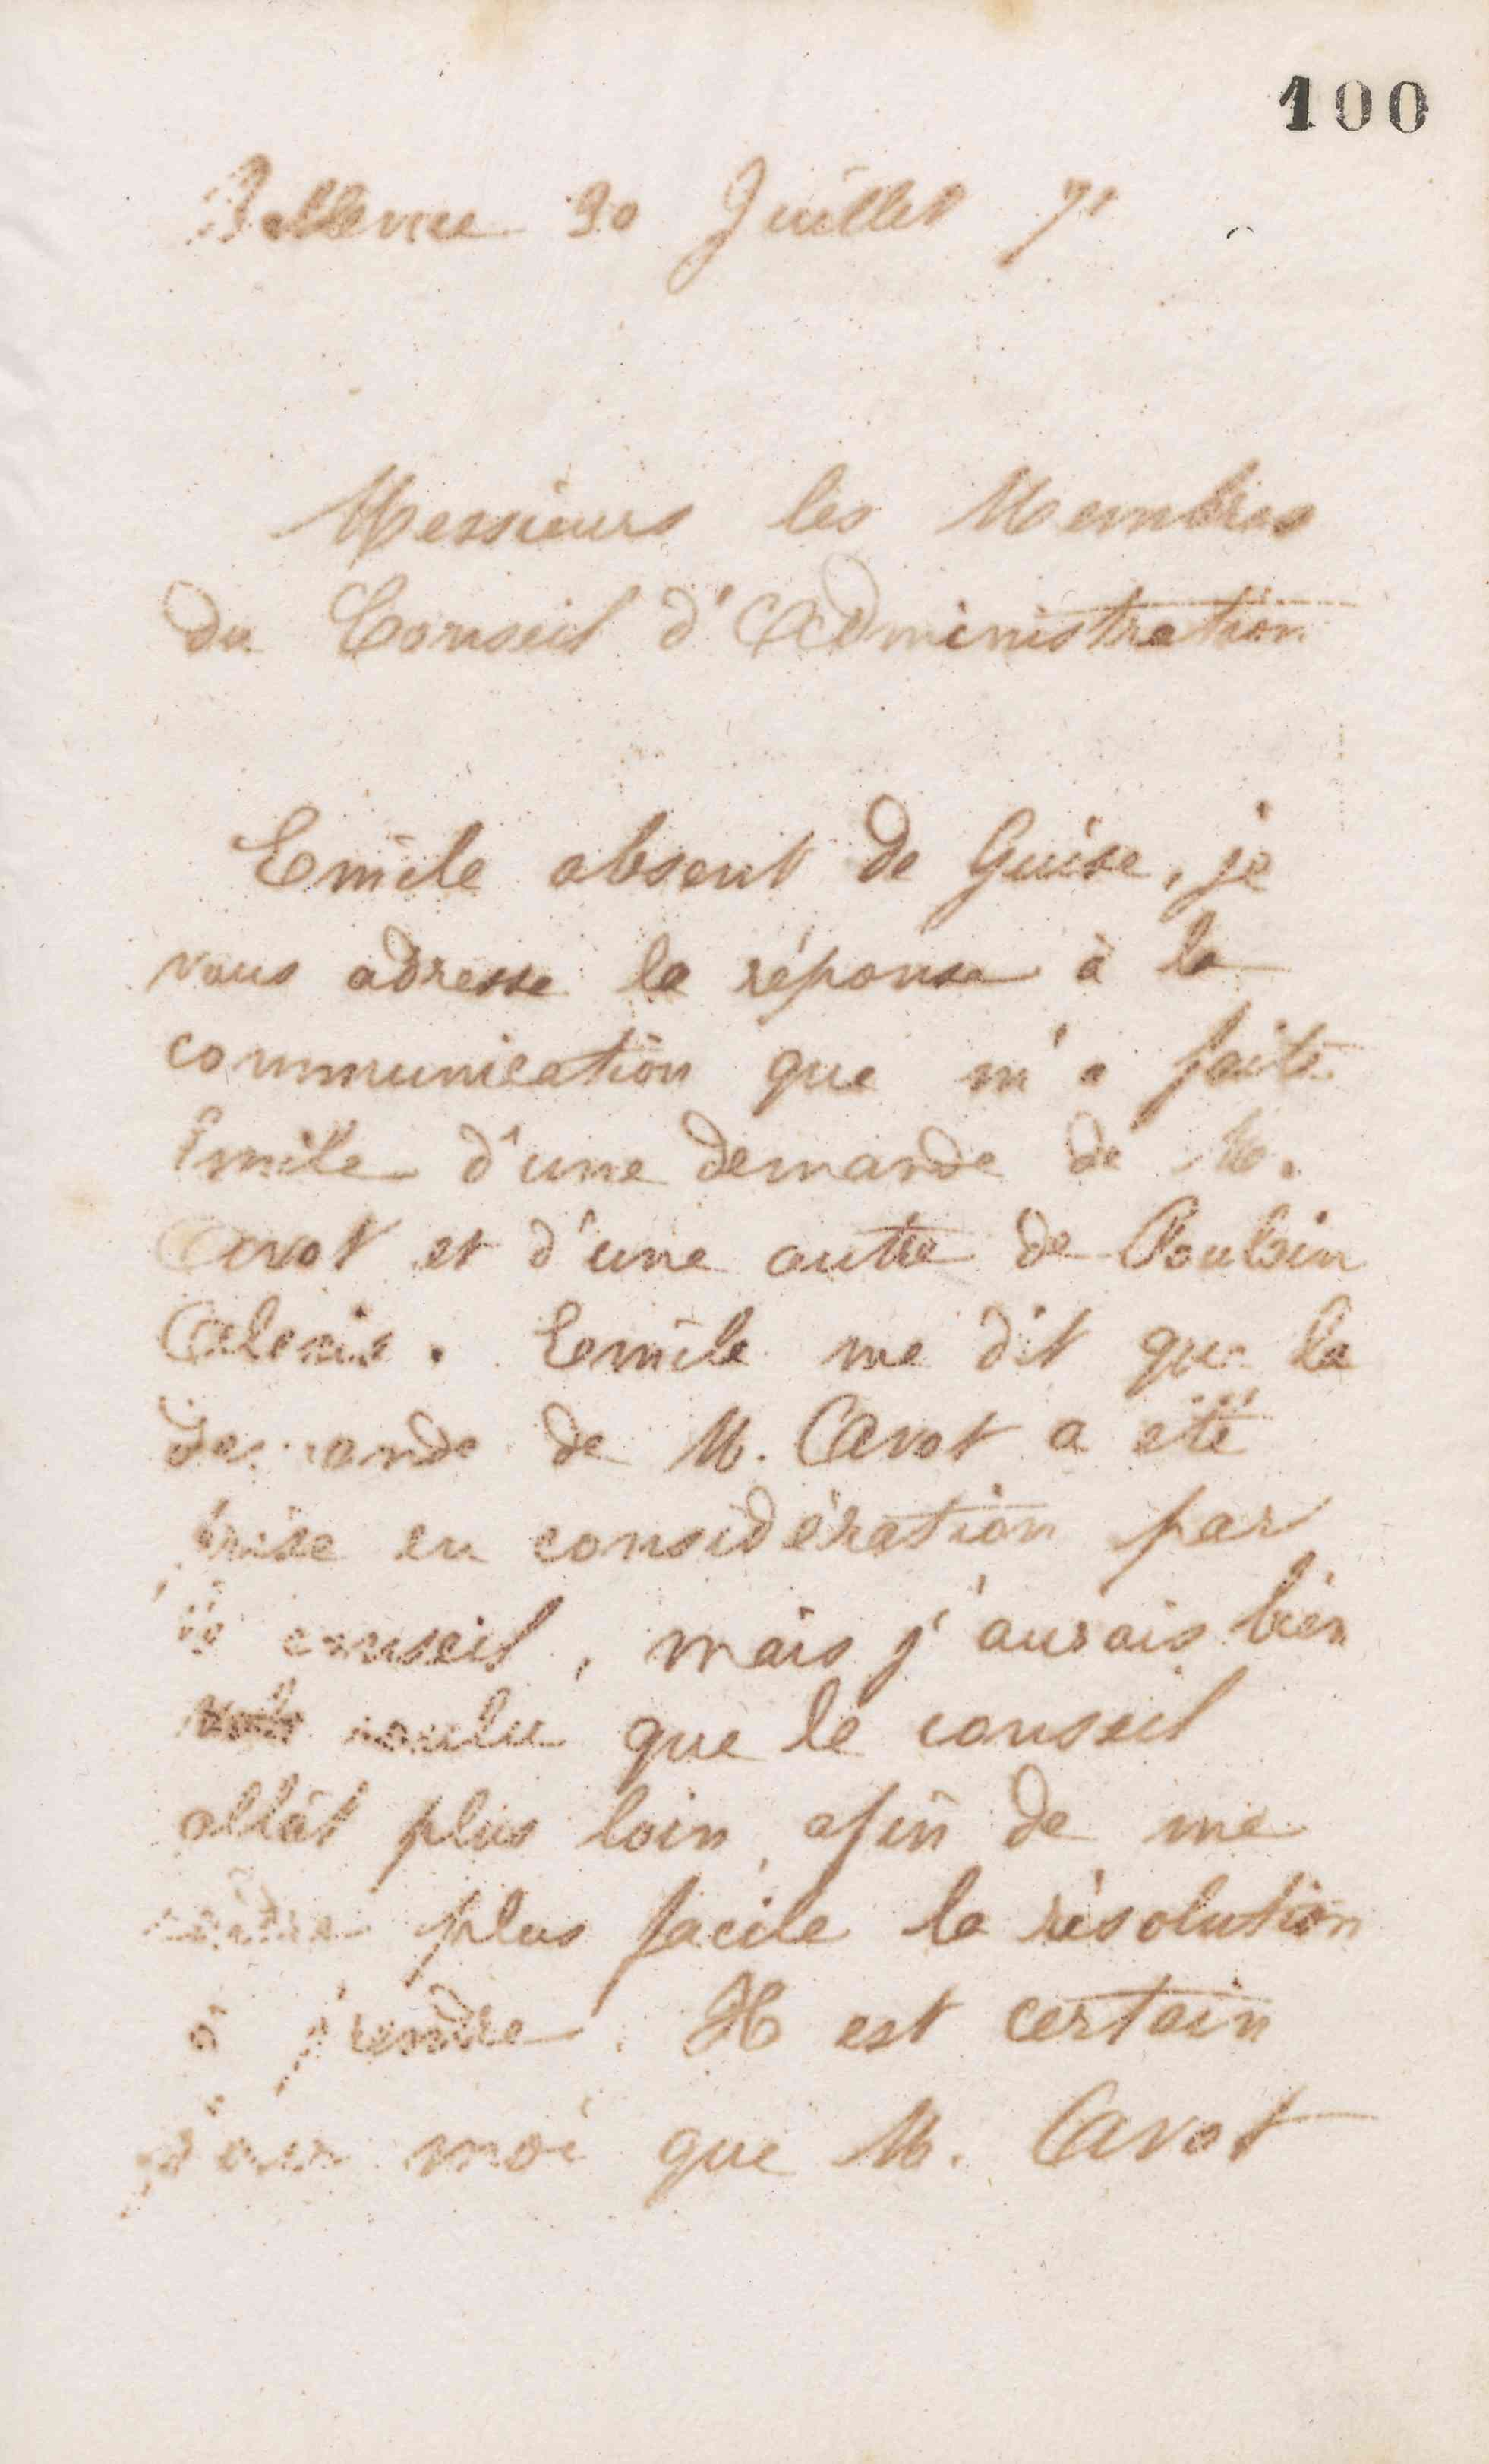 100
Bellevue 30 Juillet 71
Messieurs les Membres
du Conseil d'Administration
Emile absent de Guise, je
vous adresse la réponse à la
communication que m'a faite
Emile d'une demande de M.
Avot et d'une autre de Poulain
Alexis. Emile me dit que la
demande de M. Avot a été
prise en considération par
le conseil, mais j'aurais bien
voulu que le conseil
allât plus loin, afin de me
rendre plus facile la résolution
à prendre. Il est certain
pour moi que M. Avot